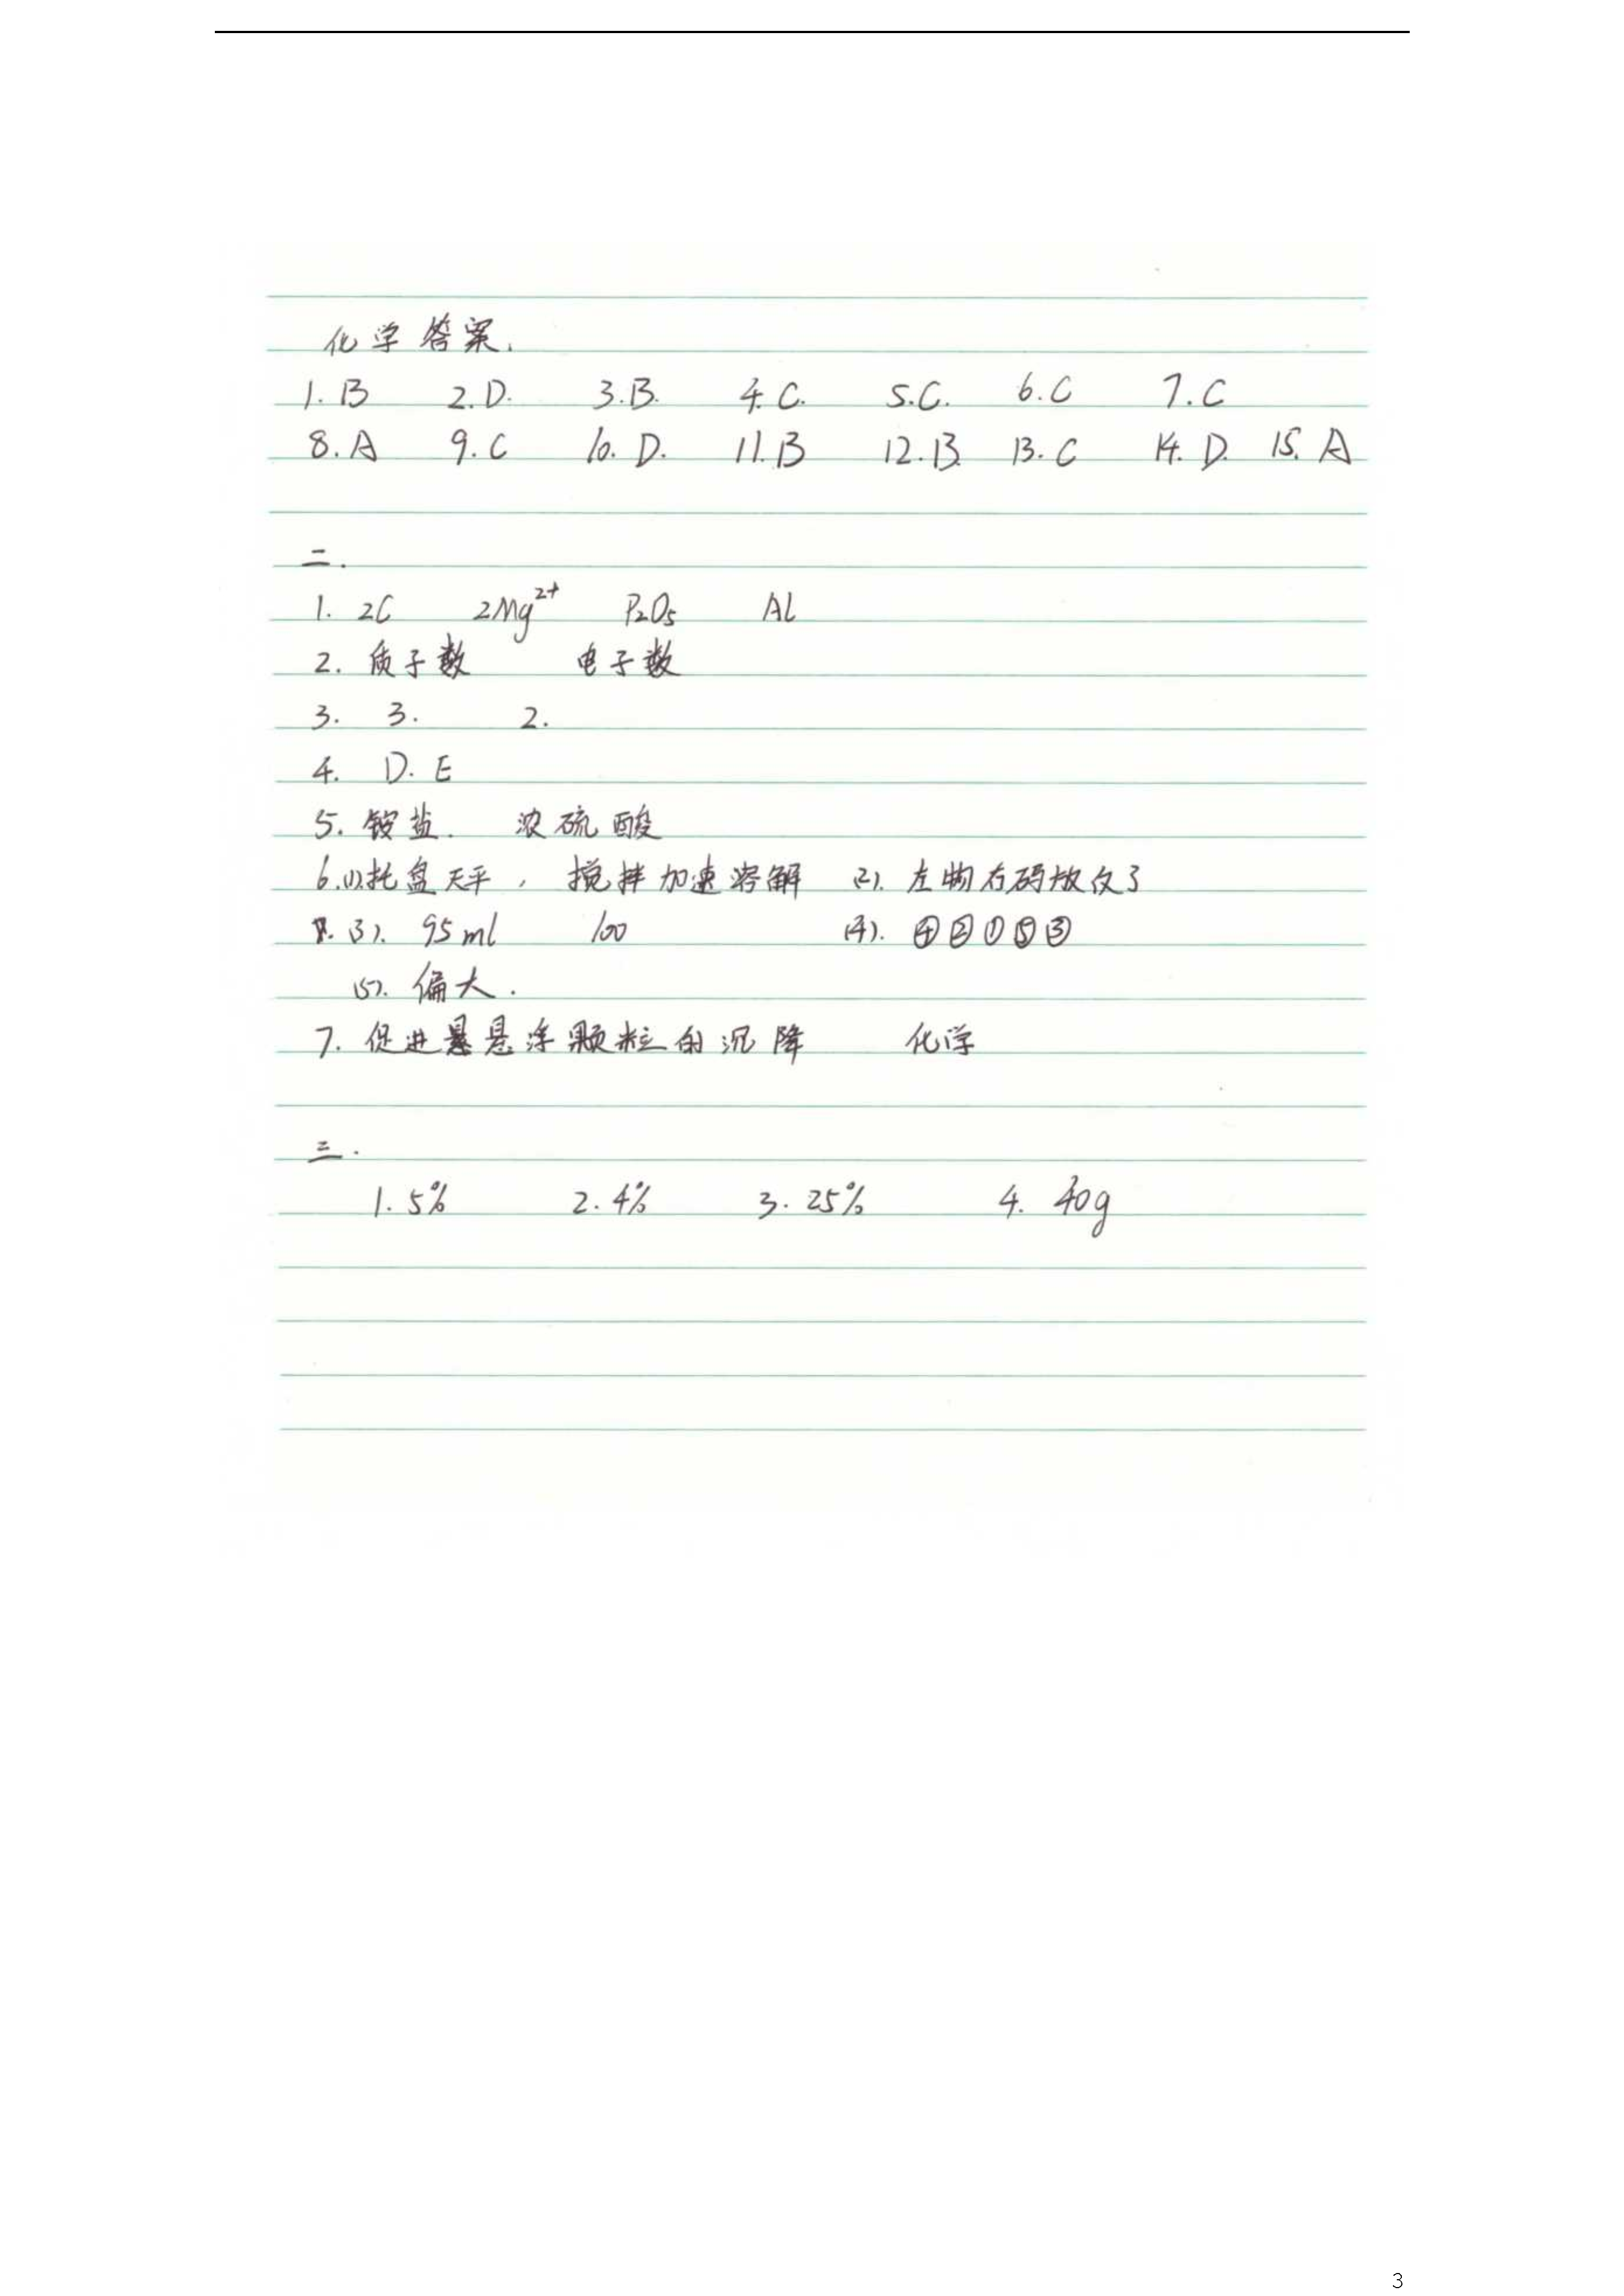 化学答案.
1.B 2.D. 3.B. 4.C. 5.C. 6.C 7.C
8.A 9.C 10.D. 11.B 12.B. 13.C 14.D. 15.A
二.
1. 2C 2Mg²⁺ P₂O₅ Al
2. 质子数 电子数
3. 3. 2.
4. D. E
5. 铵盐. 浓硫酸
6.(1).托盘天平, 搅拌加速溶解 (2). 左物右码放反了
(3). 95ml 100 (4). ④②①⑤③
(5). 偏大.
7. 促进悬浮颗粒的沉降 化学
三.
1. 5% 2. 4% 3. 25% 4. 40g
3